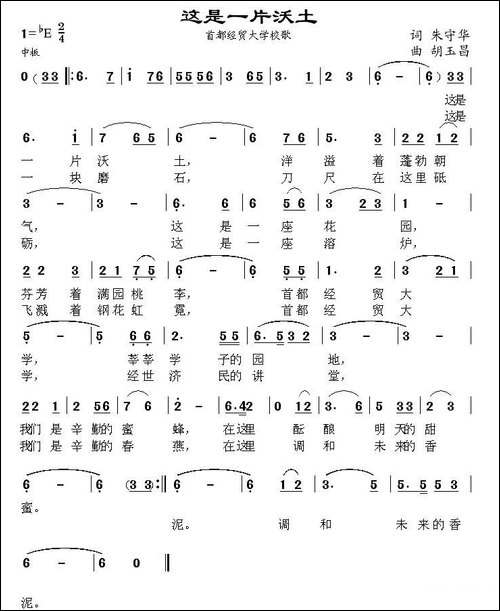 这是一片沃土
首都经贸大学校歌
1=♭E 2/4
中板
词 朱守华
曲 胡玉昌
0 (33 ‖: 6. 7 1 176 5553 653 123 722 6 - 6) 33
这是
这是
6. 1 7 65 6 - 6 76 5. 3 22 12
一 片 沃 土, 洋 溢 着 蓬勃 朝
一 块 磨 石, 刀 尺 在 这里 砥
3 - 3 - 6 6 6 56 3 - 3 23 6 1
气, 这 是 一 座 花 园,
砺, 这 是 一 座 溶 炉,
2 2 3 21 75 6 - 6 6 5 1 2. 3 3 21
芬 芳 着 满园 桃 李, 首 都 经 贸 大
飞 溅 着 钢花 虹 霓, 首 都 经 贸 大
5 - 5 - 6 6 2. 2 55 5 6. 5 32 3 -
学, 莘 莘 学 子的 园 地,
学, 经 世 济 民的 讲 堂,
22 1 2 56 7 6 2 - 6.42 0 12 3. 6 5 53
我们 是 辛 勤的 蜜 蜂, 在这里 酝 酿 明 天的 甜
我们 是 辛 勤的 春 燕, 在这里 调 和 未 来的 香
6 - 6 (33 :‖ 6 - 6 12 3. 6 5. 5 53
蜜。
泥。 调 和 未 来 的 香
6 - 6 0 ‖
泥。